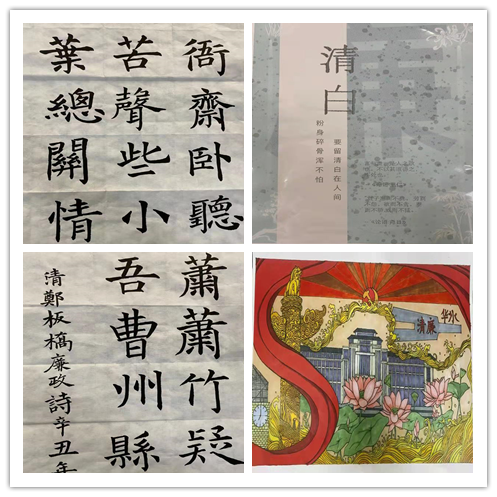 衙齋卧聽
苦聲些小
葉總關情
清白
粉身碎骨浑不怕
要留清白在人间
蕭蕭竹疑
吾曹州縣
清鄭板橋廉政詩辛丑年
清廉华水